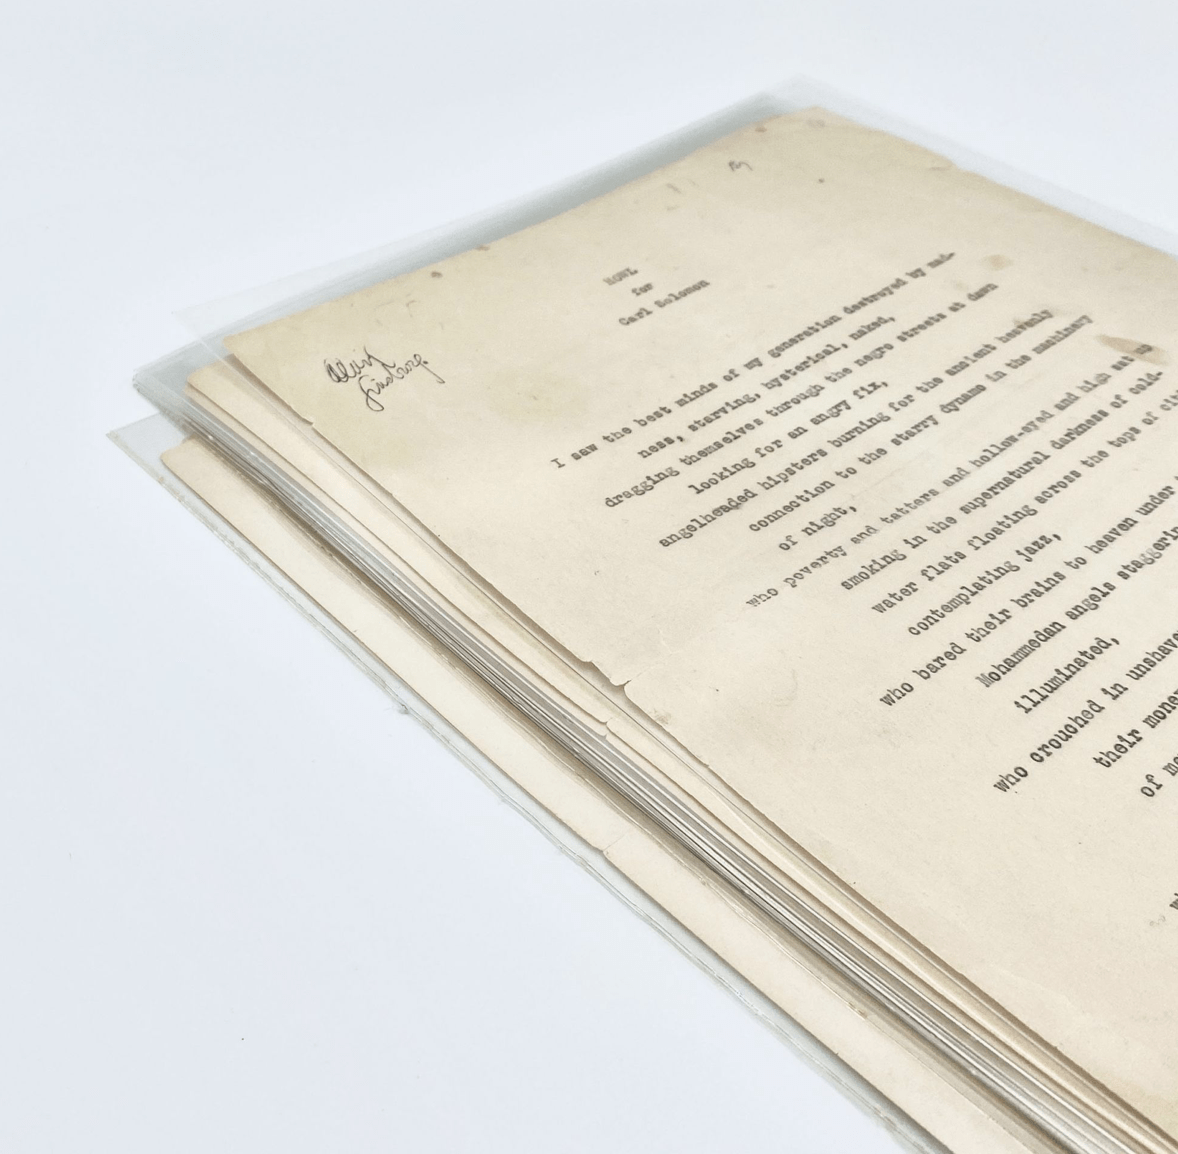 Allen
Ginsberg.
HOWL
for
Carl Solomon
I saw the best minds of my generation destroyed by mad-
ness, starving, hysterical, naked,
dragging themselves through the negro streets at dawn
looking for an angry fix,
angelheaded hipsters burning for the ancient heavenly
connection to the starry dynamo in the machinery
of night,
who poverty and tatters and hollow-eyed and high sat up
smoking in the supernatural darkness of cold-
water flats floating across the tops of
contemplating jazz,
who bared their brains to heaven under
Mohammedan angels
illuminated,
who crouched in
their
of